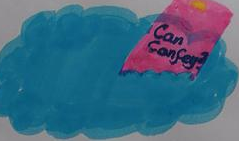 Can
Canfey?